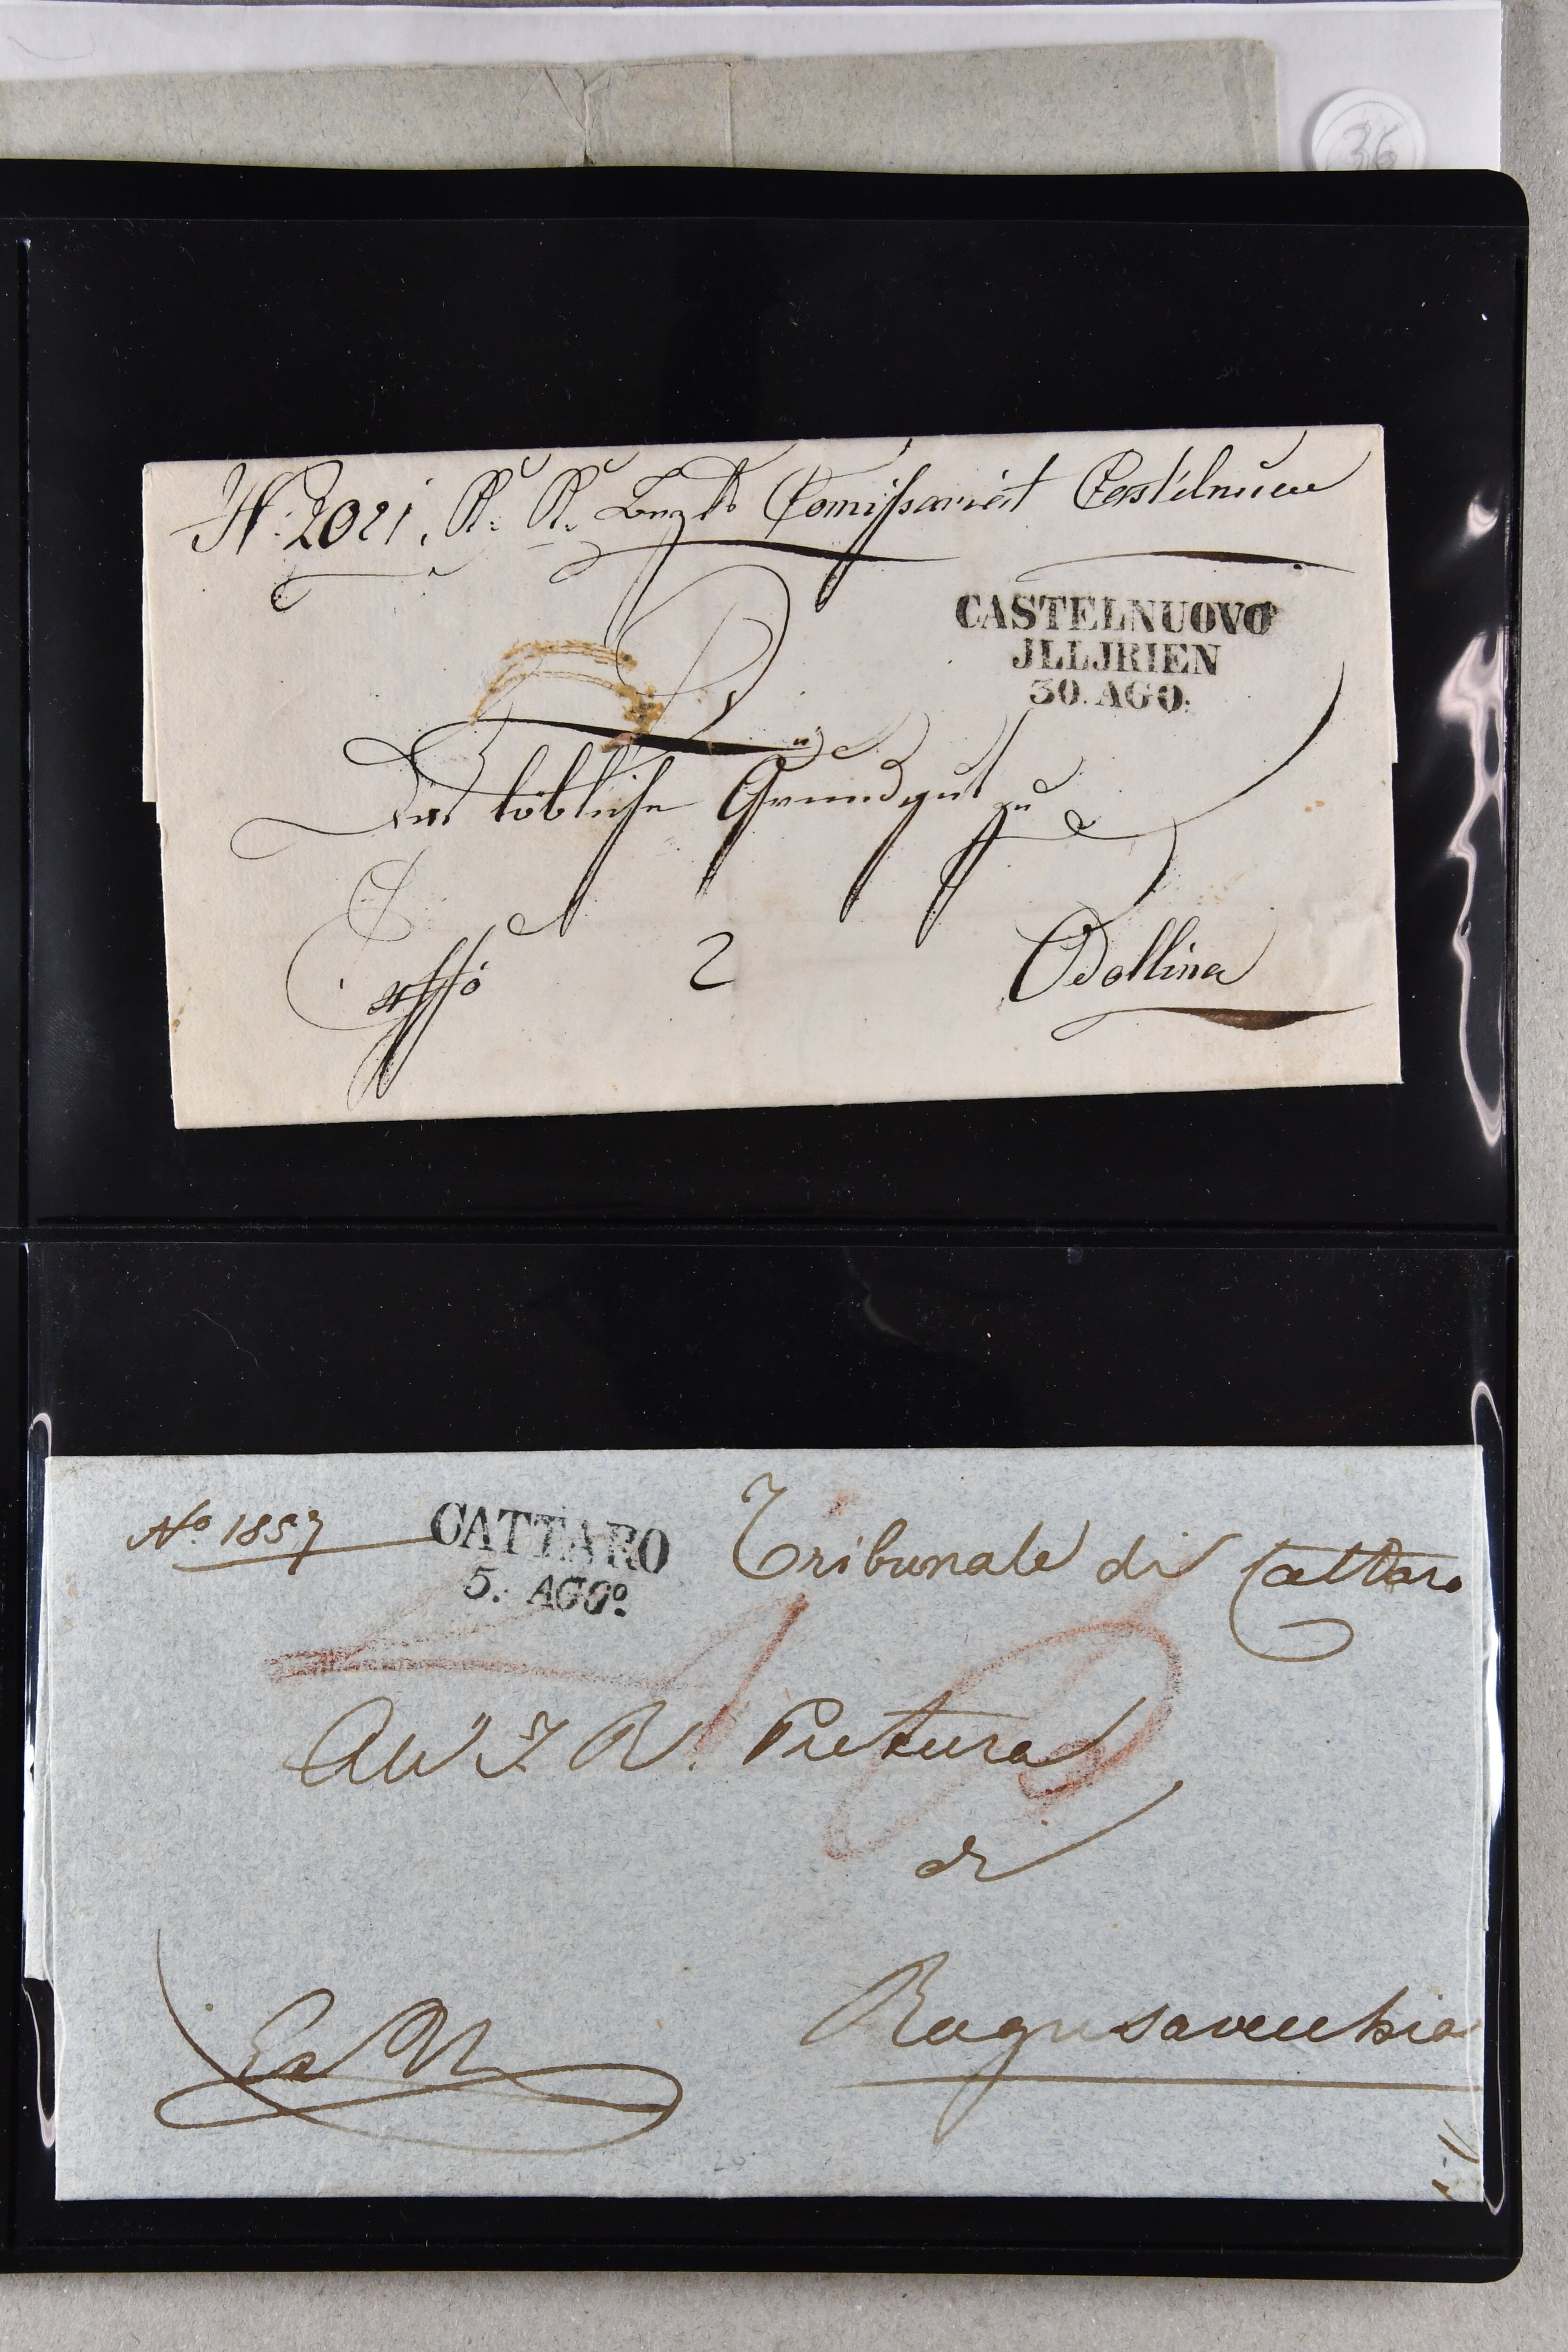 36
N: 2021. K: K. Bezks Comißariat Castelnuovo
CASTELNUOVO
JLLJRIEN
30. AGO.
löbliche Grundgut zu
2 Odollina
No. 1857 CATTARO Tribunale di Cattaro
5. AGOº.
All' I. R. Pretura
di
Ragusavecchia